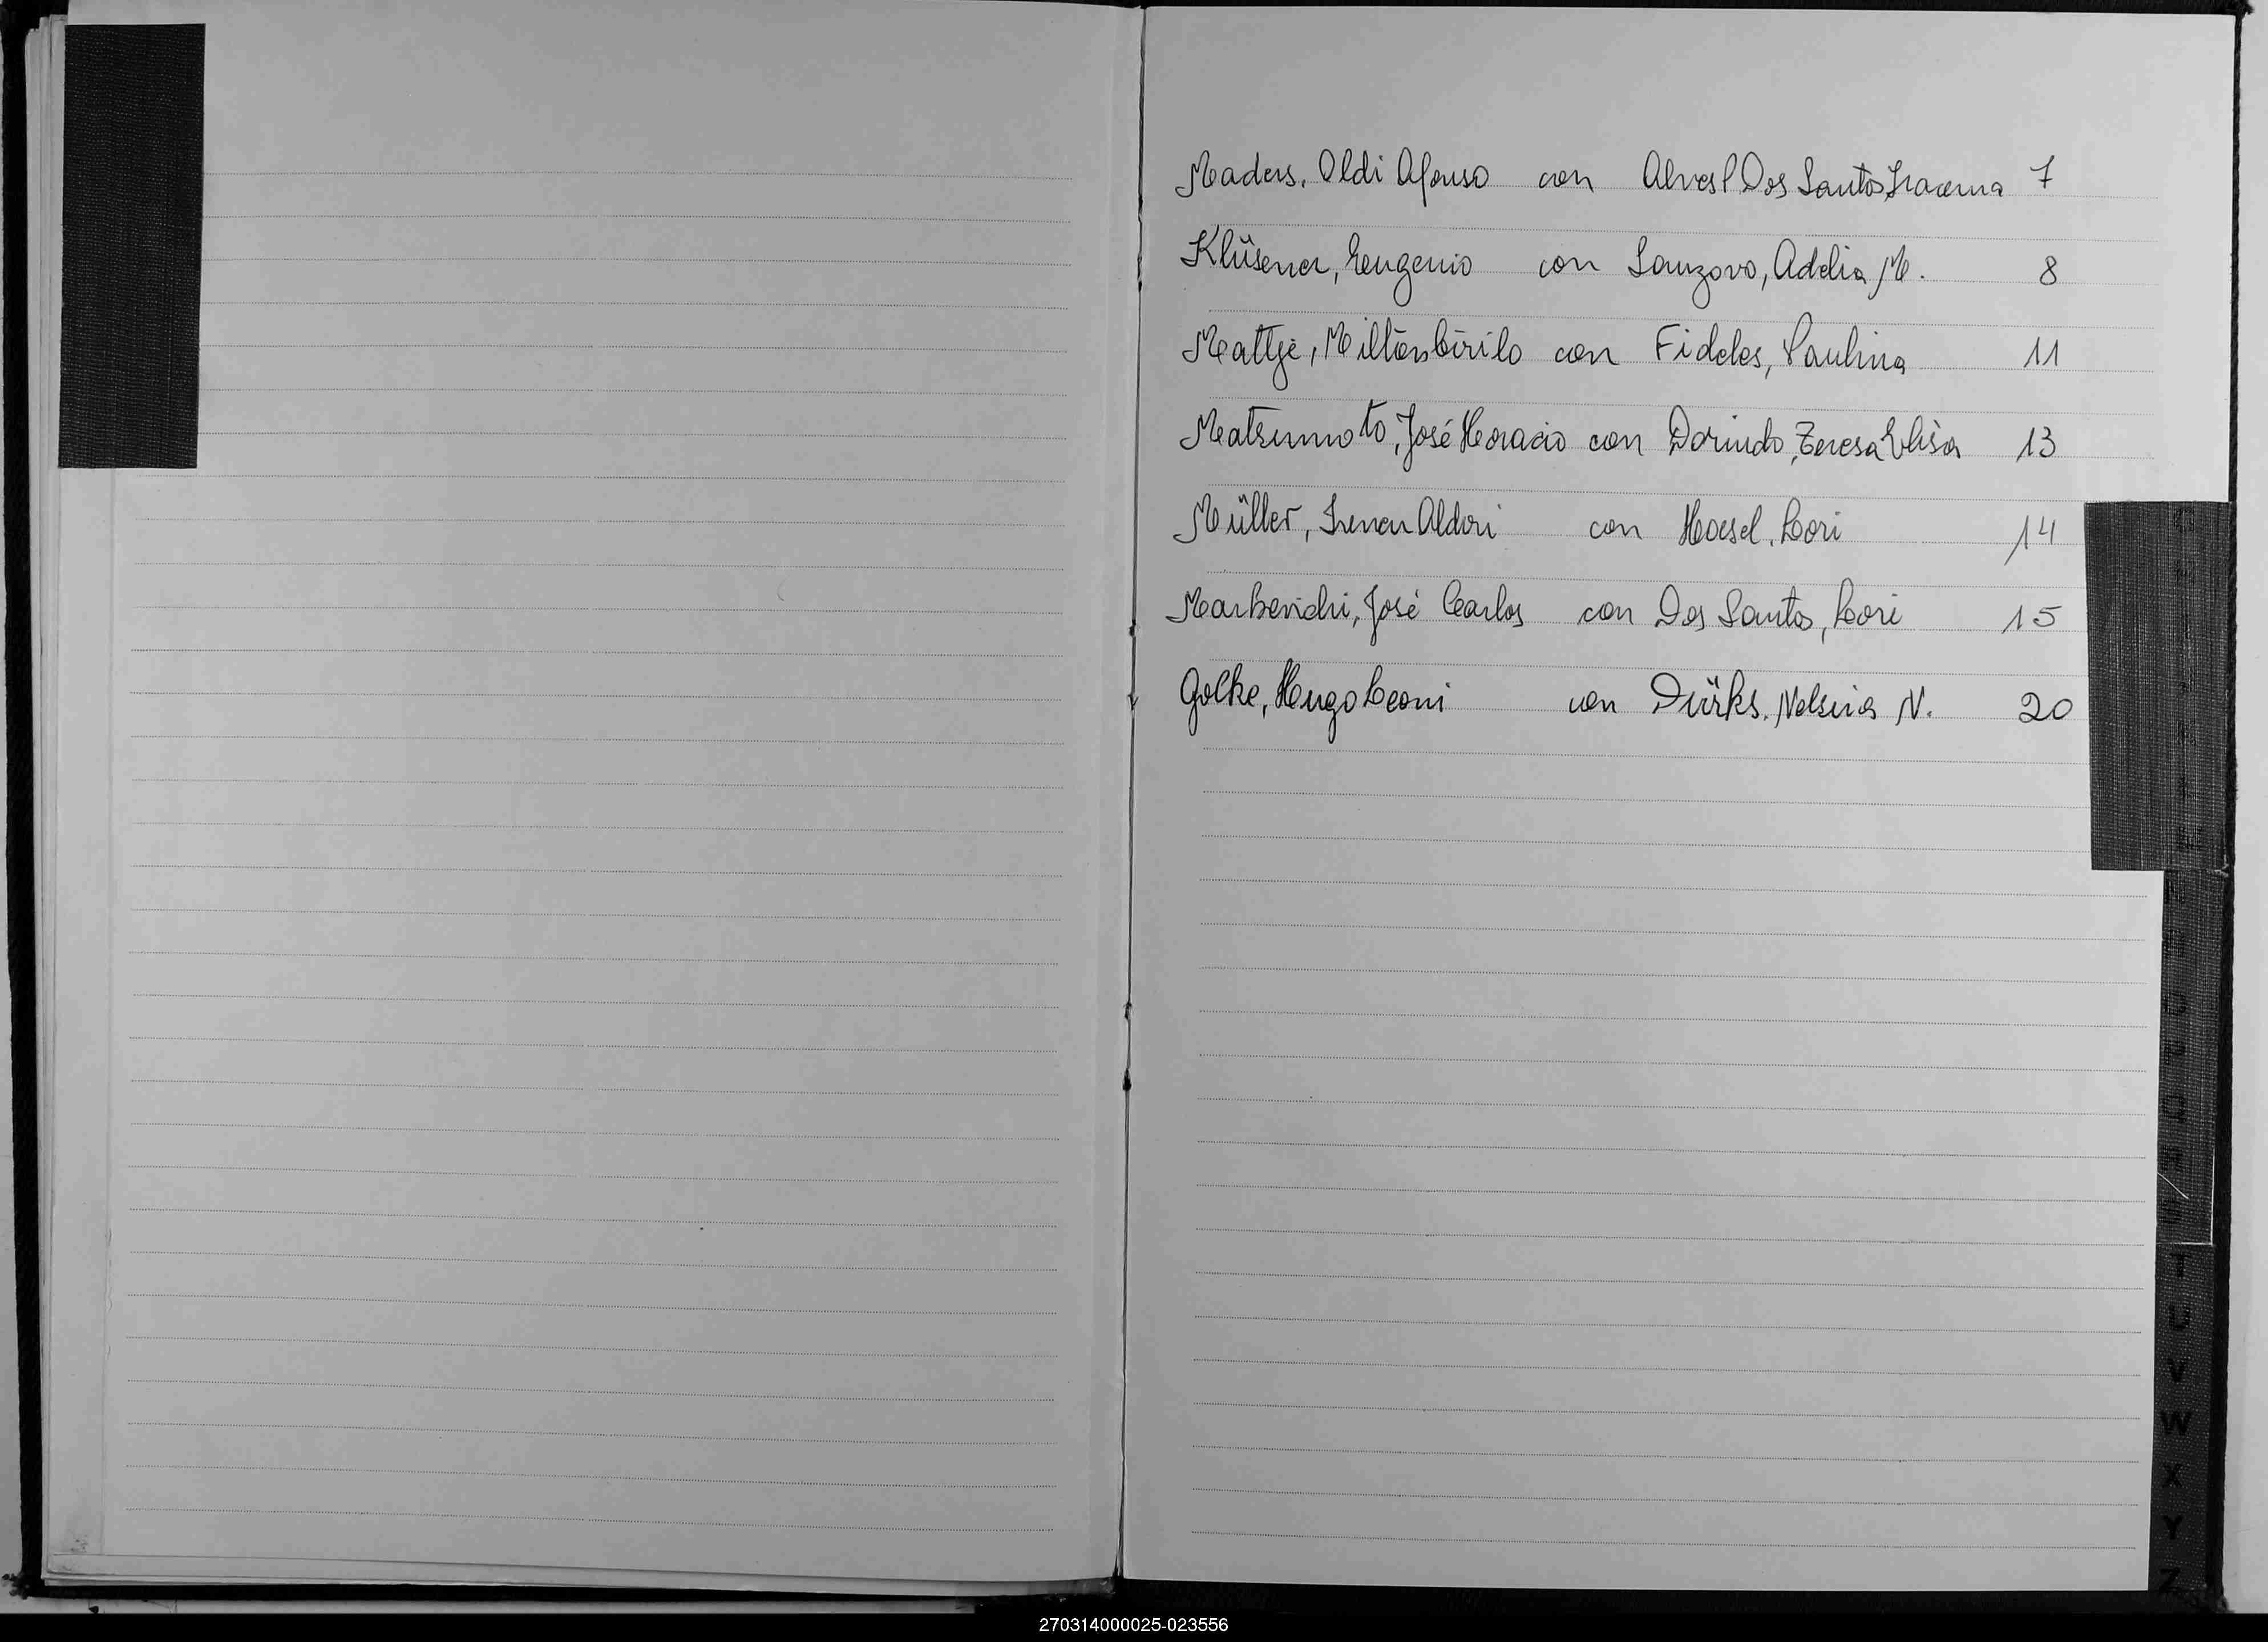 Maders, Oldi Afonso con Alves Dos Santos Iracema 7
Klüsener, Eugenio con Sanzovo, Adelia M. 8
Mattje, Milton Cirilo con Fideles, Paulina 11
Matsumoto, José Horacio con Dorindo, Teresa Elisa 13
Müller, Irineu Aldori con Hoesel, Lori 14
José Carlos con Dos Santos, Lori 15
Golke, Hugo Leoni con Dürks, Nelsina N. 20
T
U
V
W
X
Y
Z
270314000025-023556